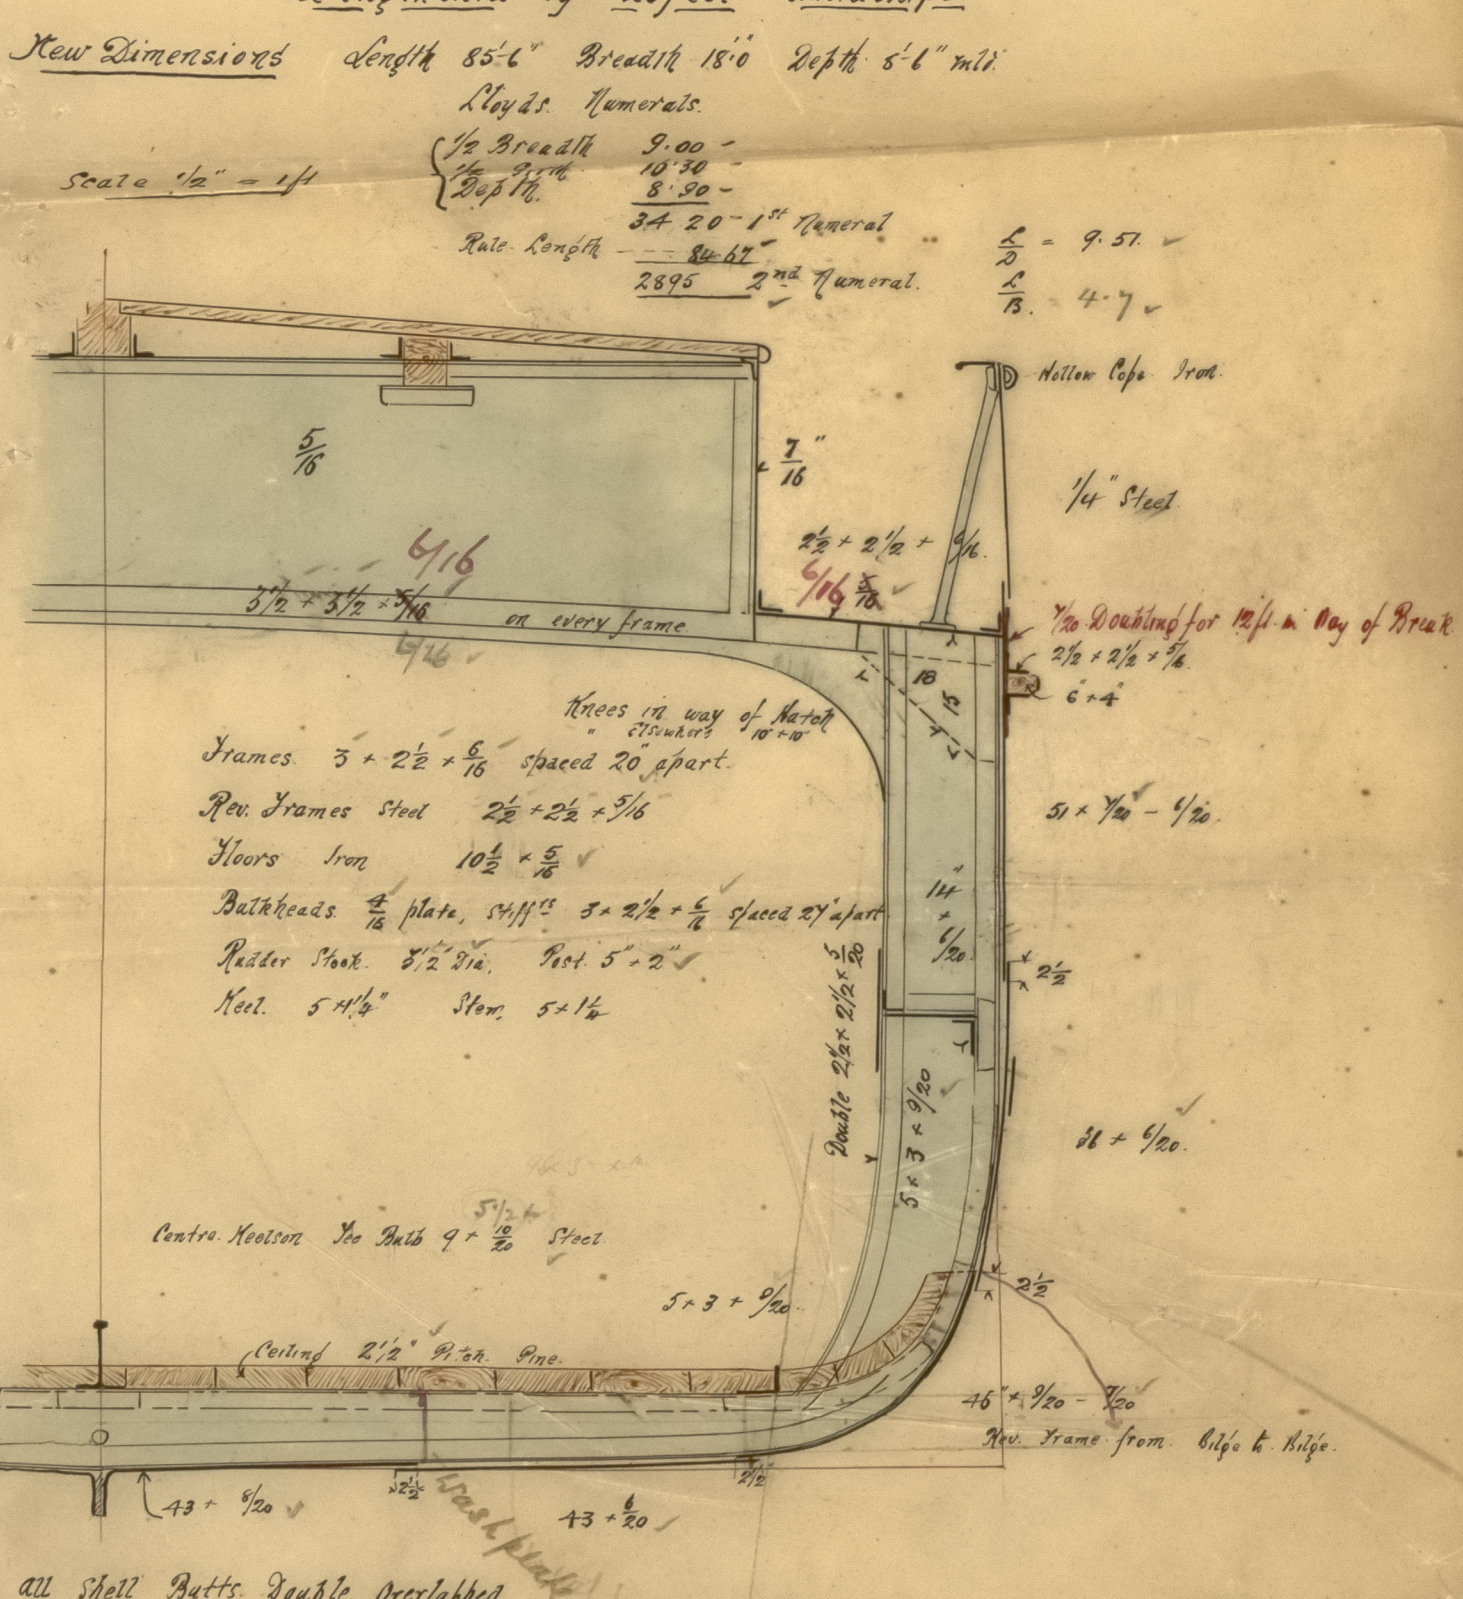 New Dimensions Length 85'-6" Breadth 18'.0" Depth 8'-6" mld.
Lloyds. Numerals.
1/2 Breadth 9.00 -
1/2 Girth 16.30 -
Depth. 8.90 -
Scale 1/2" = 1 ft
34 20 - 1st Numeral
Rule Length 84.67
2895 2nd Numeral.
L/D = 9.51.
L/B. 4.7
Hollow Cope Iron.
5/16
7/16"
1/4" Steel
2 1/2 + 2 1/2 + 6/16.
6/16 5/16
6/16
3 1/2 + 3 1/2 + 5/16 on every frame
6/16
7/20 Doubling for 12 ft. in Way of Break
2 1/2 + 2 1/2 + 5/16.
6" + 4"
18
15
Knees in way of Hatch
" Elsewhere 10" + 10"
Frames. 3 + 2 1/2 + 6/16 spaced 20" apart.
Rev. Frames Steel 2 1/2 + 2 1/2 + 5/16
51 + 7/20 - 6/20.
Floors Iron 10 1/2 + 5/16
Bulkheads. 4/16 plate, Stiffrs 3 + 2 1/2 + 6/16 spaced 27" apart
14" + 6/20
Rudder Stock. 3 1/2" Dia. Post. 5" + 2"
2 1/2
Keel. 5 + 1 1/4" Stem, 5 + 1 1/4
Double 2 1/2 + 2 1/2 + 5/20
5 + 3 + 9/20
36 + 6/20.
5 1/2 +
Centre. Keelson Tee Bulb 9 + 10/20 Steel
5 + 3 + 9/20.
2 1/2
Ceiling 2 1/2" Pitch Pine.
46" + 9/20 - 7/20
Rev. Frame from Bilge to Bilge.
2 1/2
2 1/2"
43 + 8/20
43 + 6/20
Wash plate
All Shell Butts. Double Overlapped